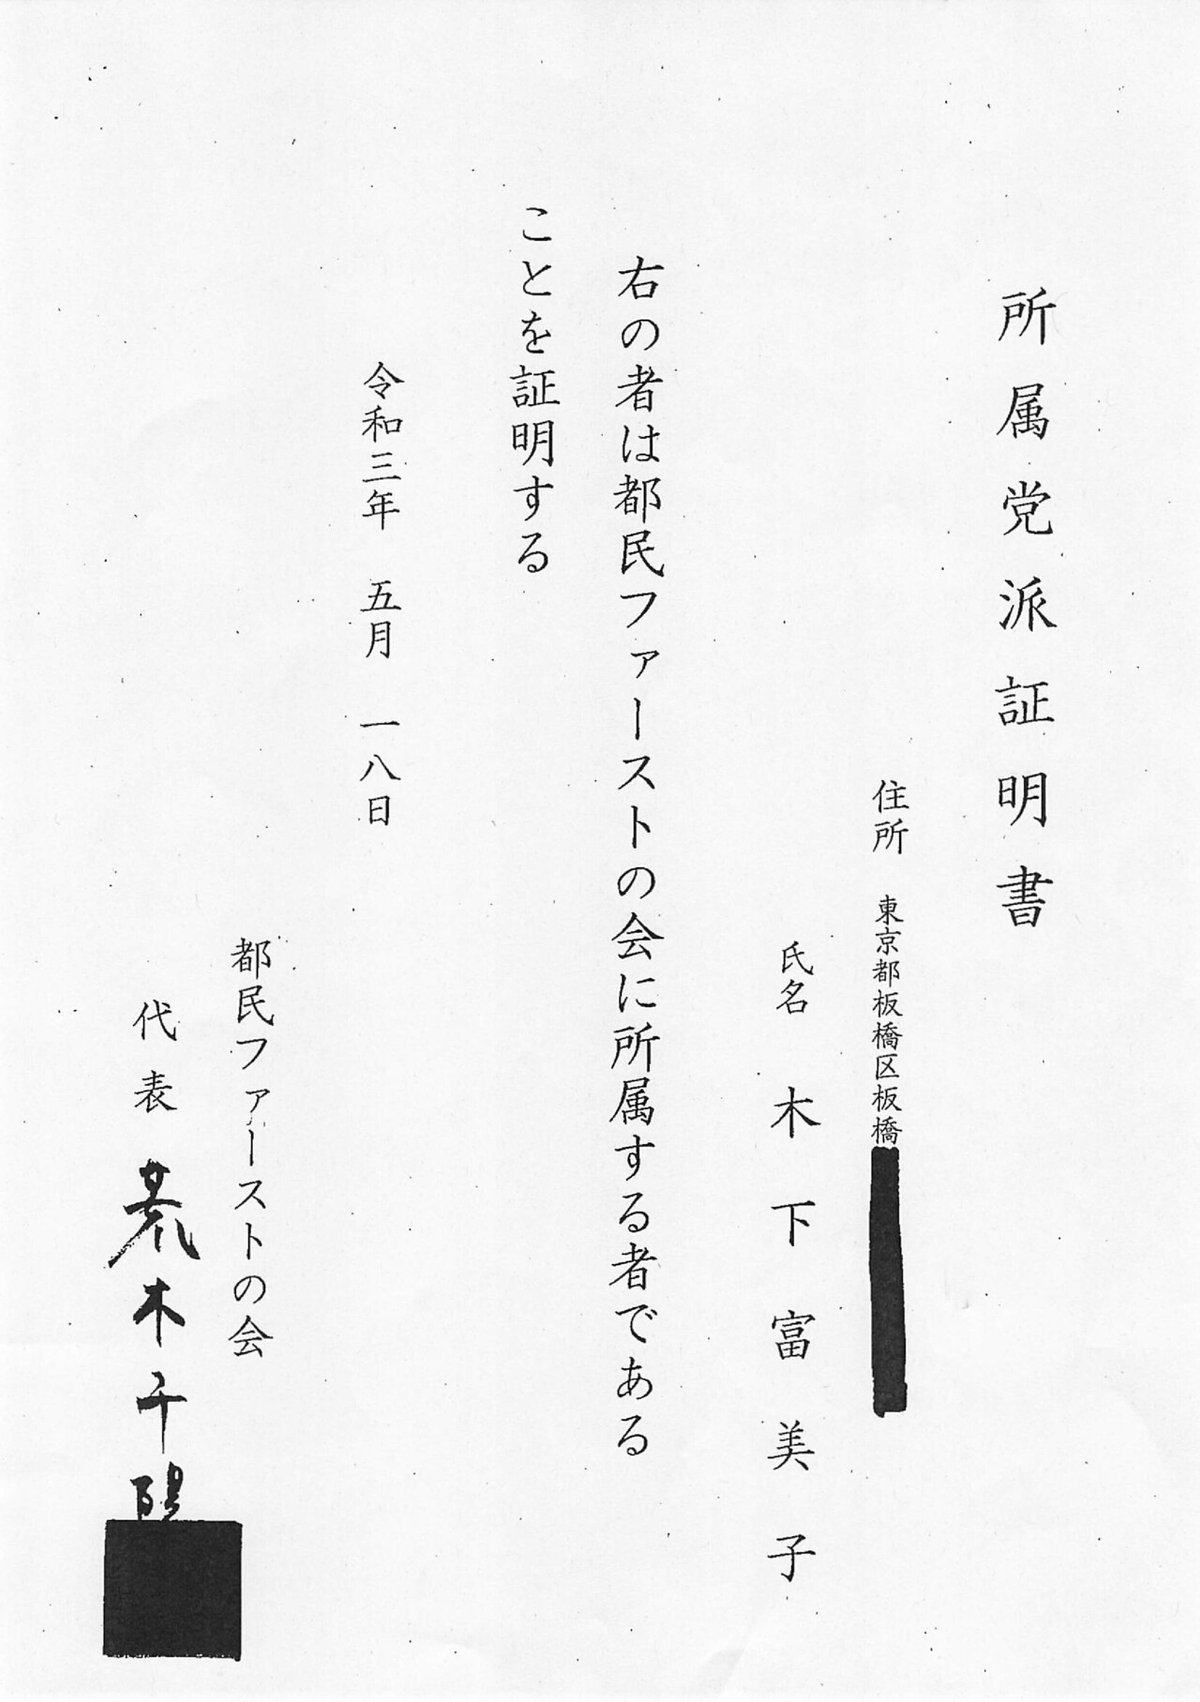 所属党派証明書
住所　東京都板橋区板橋
氏名　木下富美子
右の者は都民ファーストの会に所属する者である
ことを証明する
令和三年　五月　一八日
都民ファーストの会
代表　荒木千陽